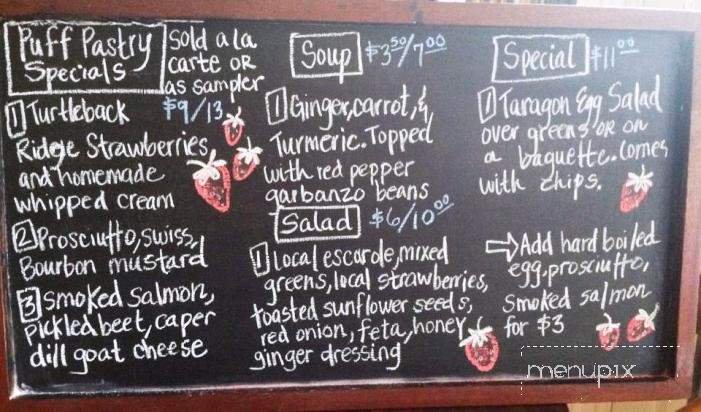 Puff Pastry
Specials
Sold a la
carte or
as sampler
$9/13
1 Turtleback
Ridge Strawberries
and homemade
whipped cream
2 Prosciutto, swiss,
Bourbon mustard
3 smoked salmon,
pickled beet, caper
dill goat cheese
Soup $3.50/7.00
1 Ginger, carrot, &
Turmeric. Topped
with red pepper
garbanzo beans
Salad $6/10.00
1 local escarole, mixed
greens, local strawberries,
toasted sunflower seeds,
red onion, feta, honey
ginger dressing
Special $11.00
1 Taragon Egg Salad
over greens or on
a baguette. Comes
with chips.
⇨ Add hard boiled
egg, prosciutto,
smoked salmon
for $3
menupix